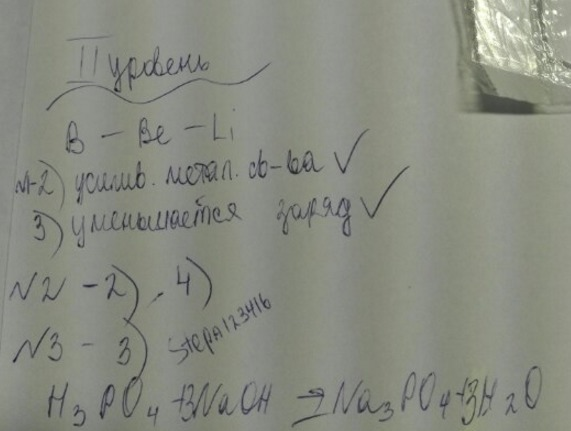 II уровень
B - Be - Li
N1-2) усилив. метал. св-ва ✓
3) уменьшается заряд ✓
N2 - 2), 4)
N3 - 3) stepa123416
H3PO4+3NaOH = Na3PO4+3H2O